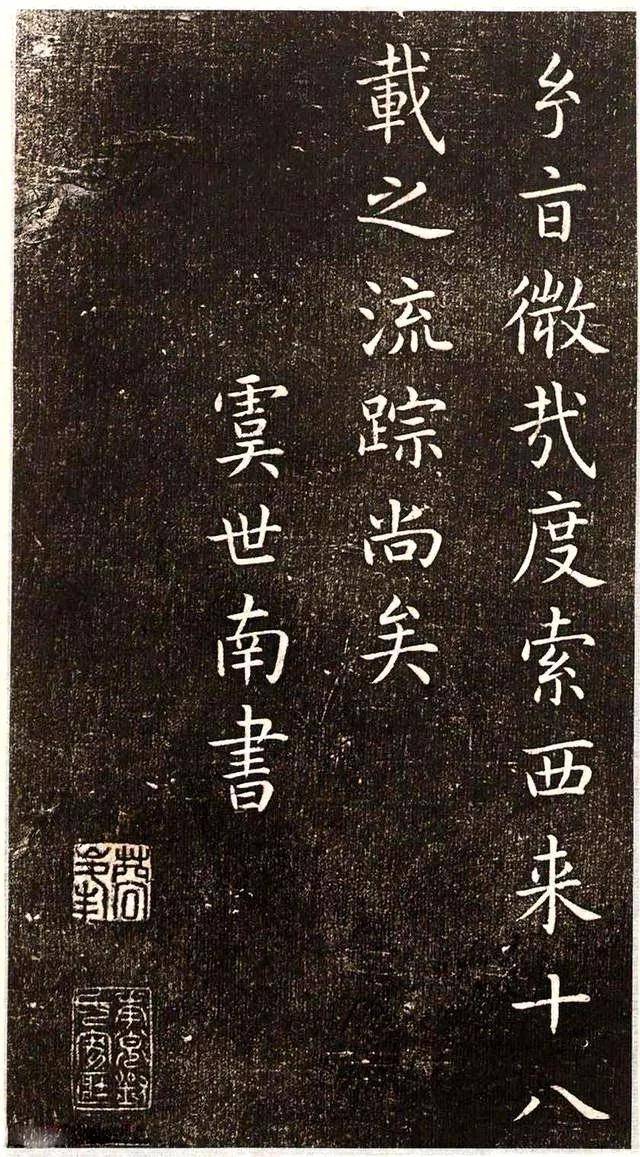 兮㫖微哉度索西来十八
載之流踪尚矣
虞世南書